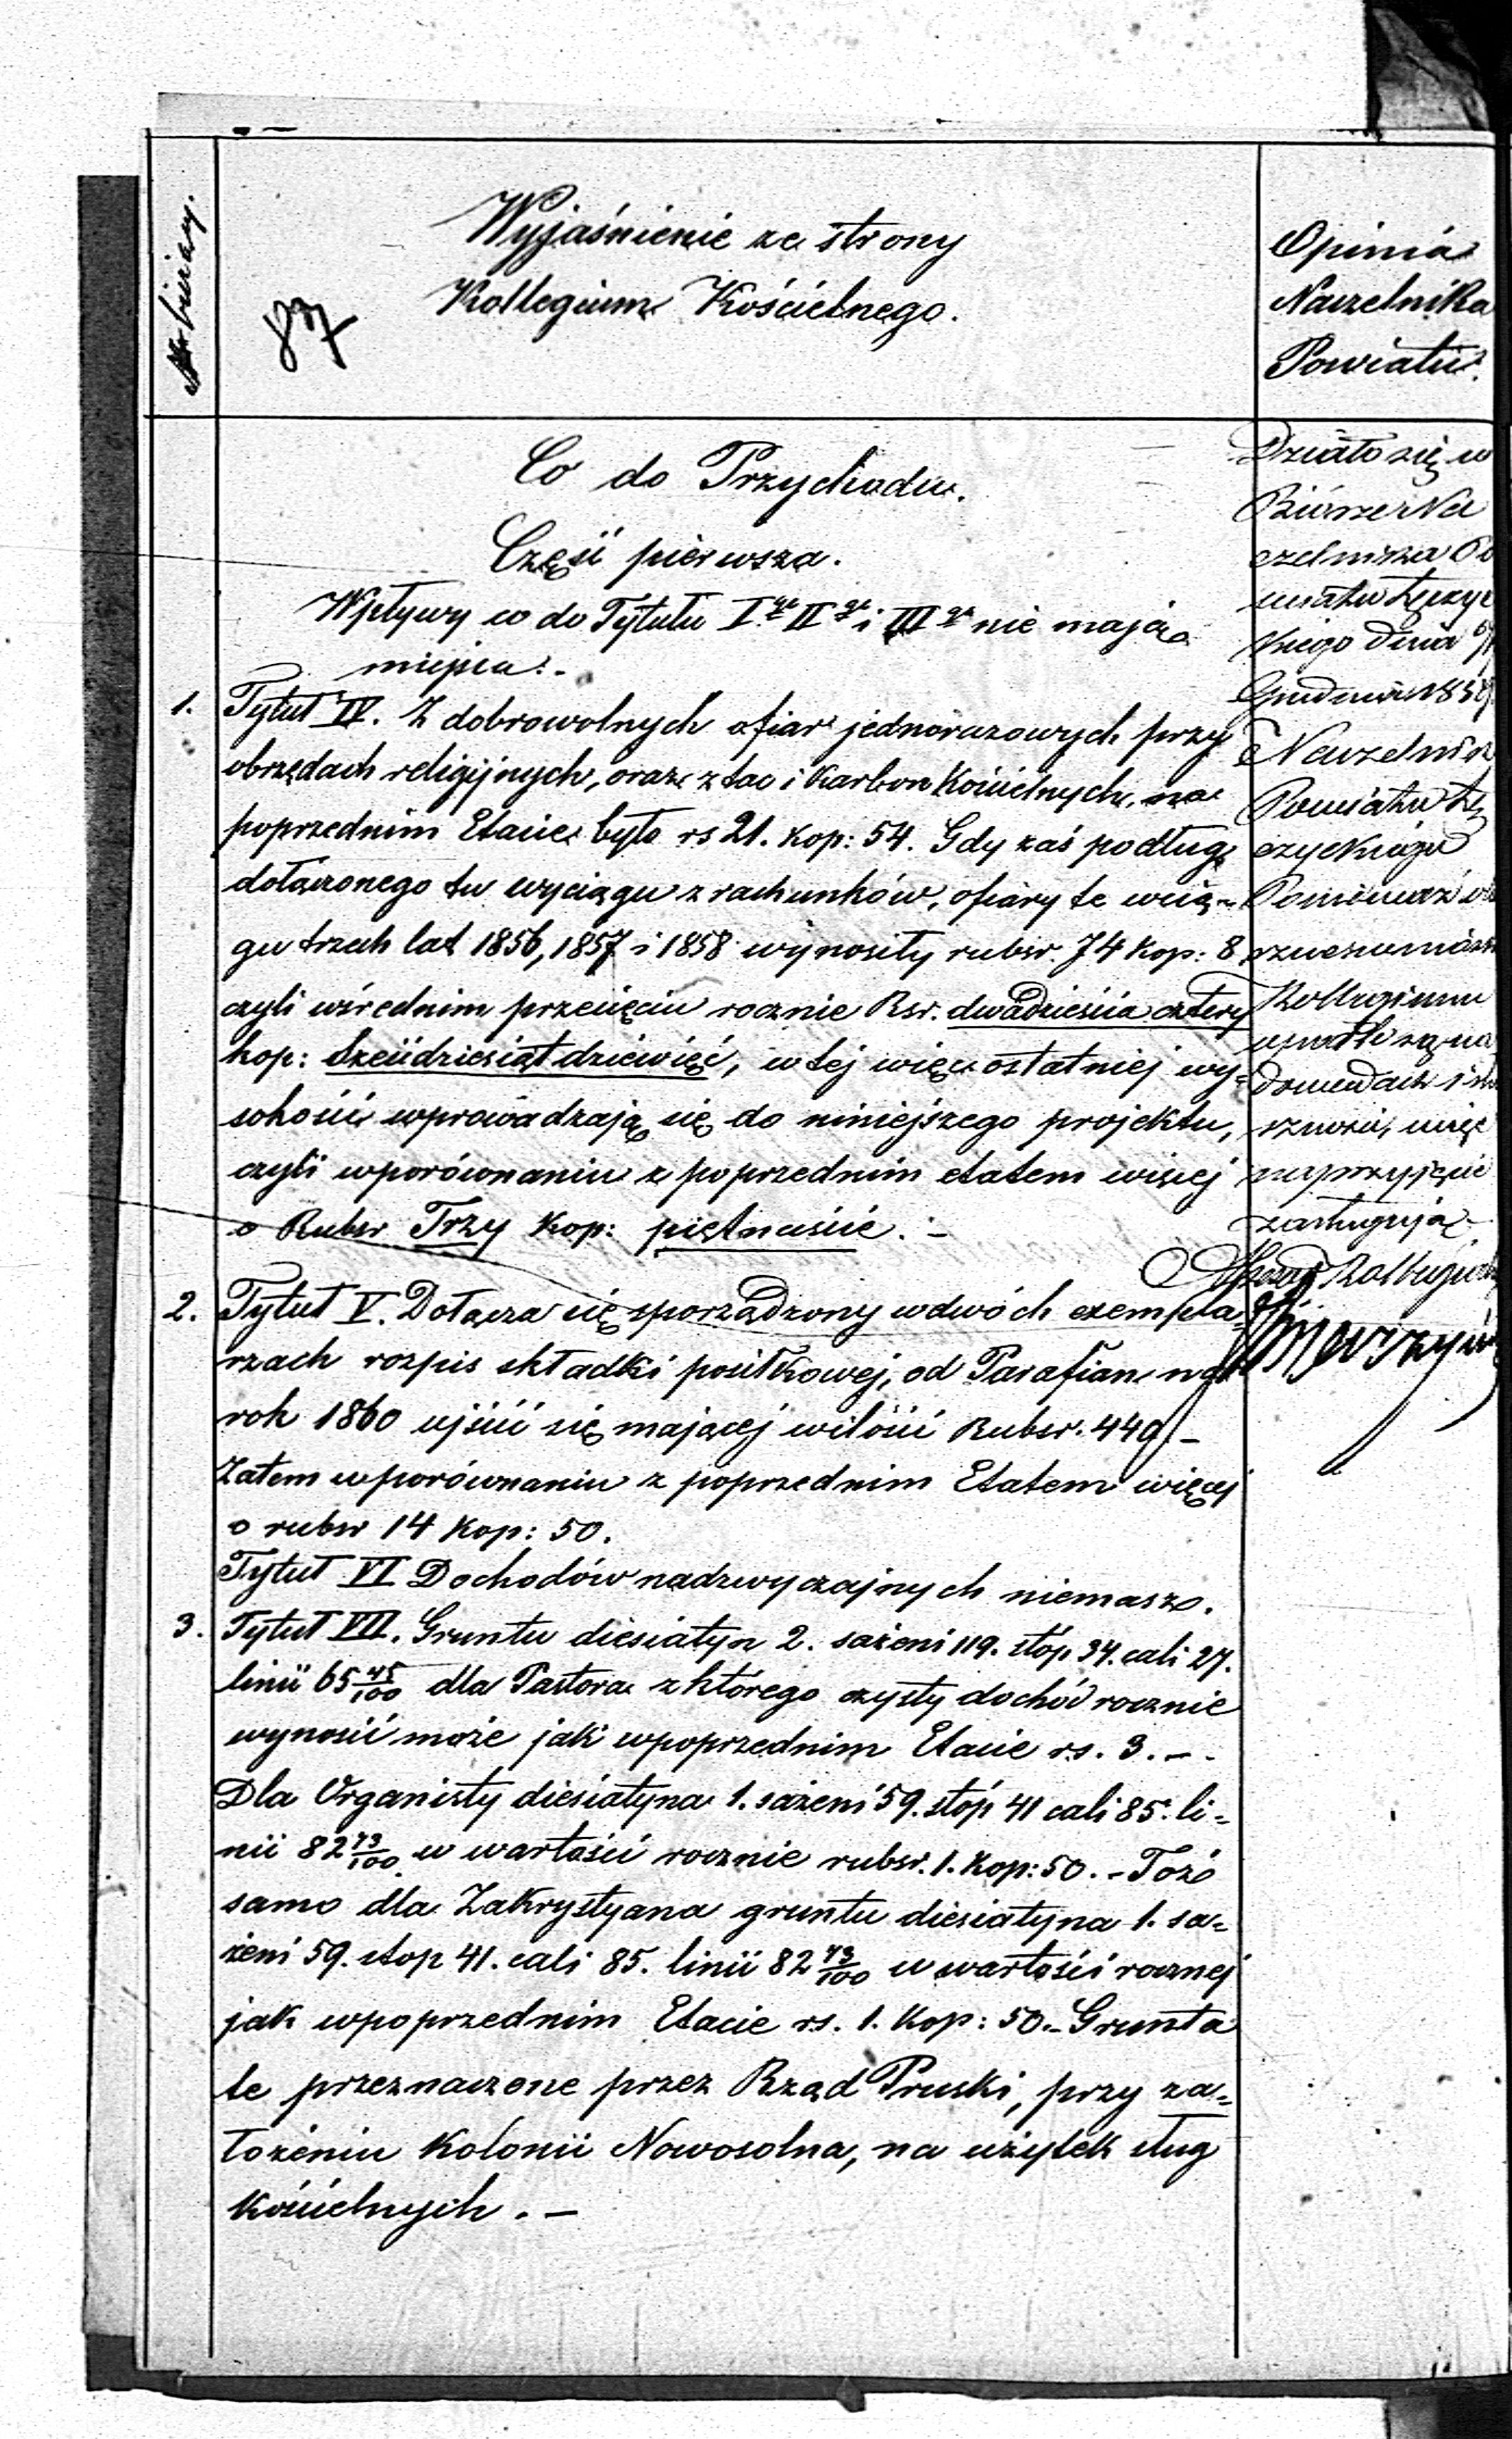 Nr bieżący.
87
Wyjaśnienie ze strony
Kollegium Kościelnego.
Opinia
Naczelnika
Powiatu.
Co do Przychodu.
Część pierwsza.
Wpływy co do Tytułu I go II go i III go nie mają
miejsca.-
1. Tytuł IV. Z dobrowolnych ofiar jednorazowych przy
obrzędach religijnych, oraz z tac i Karbon Kościelnych, na
poprzednim Etacie było rs 21. kop: 54. Gdy zaś podług
dołączonego tu wyciągu z rachunków, ofiary te wcią-
gu trzech lat 1856, 1857 i 1858 wynosiły rubsr. 74 kop: 8
czyli wśrednim przecięciu rocznie Rsr. dwadzieścia cztery
kop: sześćdziesiąt dziewięć, w tej więc ostatniej wy-
sokości wprowadzają się do niniejszego projektu,
czyli wporównaniu z poprzednim etatem więcej
o Rubsr Trzy Kop: piętnaście. -
2. Tytuł V. Dołącza się sporządzony wdwóch exempla-
rzach rozpis składki posiłkowej, od Parafian na
rok 1860 ujścić się mającej wilości Rubsr. 449 -
Zatem wporównaniu z poprzednim Etatem więcej
o rubsr 14 Kop: 50.
Tytuł VI Dochodów nadzwyczajnych niemasz.
3. Tytuł VII. Gruntu diesiatyn 2. sażeni 119. stóp 34. cali 27.
linii 65 45/100 dla Pastora z którego czysty dochód rocznie
wynosić może jak wpoprzednim Etacie rs. 3. - -
Dla Organisty diesiatyna 1. sażeni 59. stóp 41 cali 85. li-
nii 82 73/100 w wartości rocznie rubsr. 1. Kop: 50. - Toż
samo dla Zakrystyana gruntu diesiatyna 1. sa-
żeni 59. stop 41. cali 85. linii 82 73/100 w wartości rocznej
jak wpoprzednim Etacie rs. 1. Kop: 50. - Grunta
te przeznaczone przez Rząd Pruski, przy za-
łożeniu Kolonii Nowosolna, na użytek sług
Kościelnych. -
Działo się w
Biurze Na
czelnika Po
wiatu Łęczyc
kiego dnia
Grudnia 185
Naczelnik
Powiatu Łę
czyckiego
Ponieważ
Kollegium
oparte są na
dowodach i
więc
na przyjęcie
zasługują -